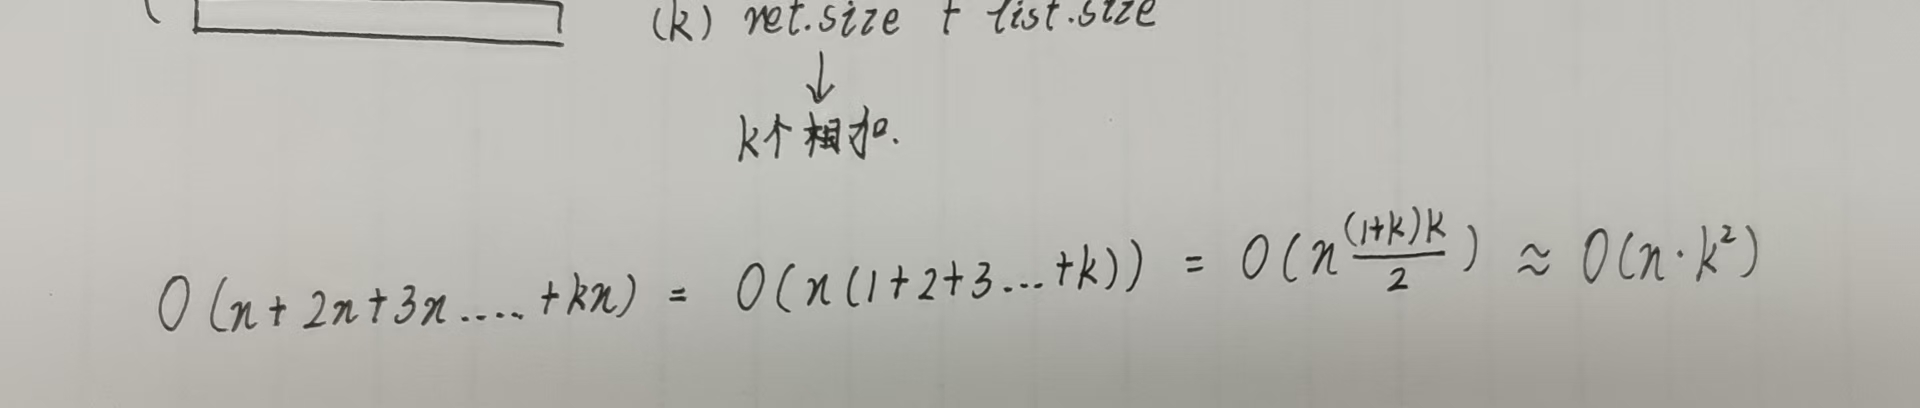 (k) ret.size + list.size
↓
k个相加.
O(n+2n+3n.....+kn) = O(n(1+2+3...+k)) = O(n\frac{(1+k)k}{2}) ≈ O(n·k²)